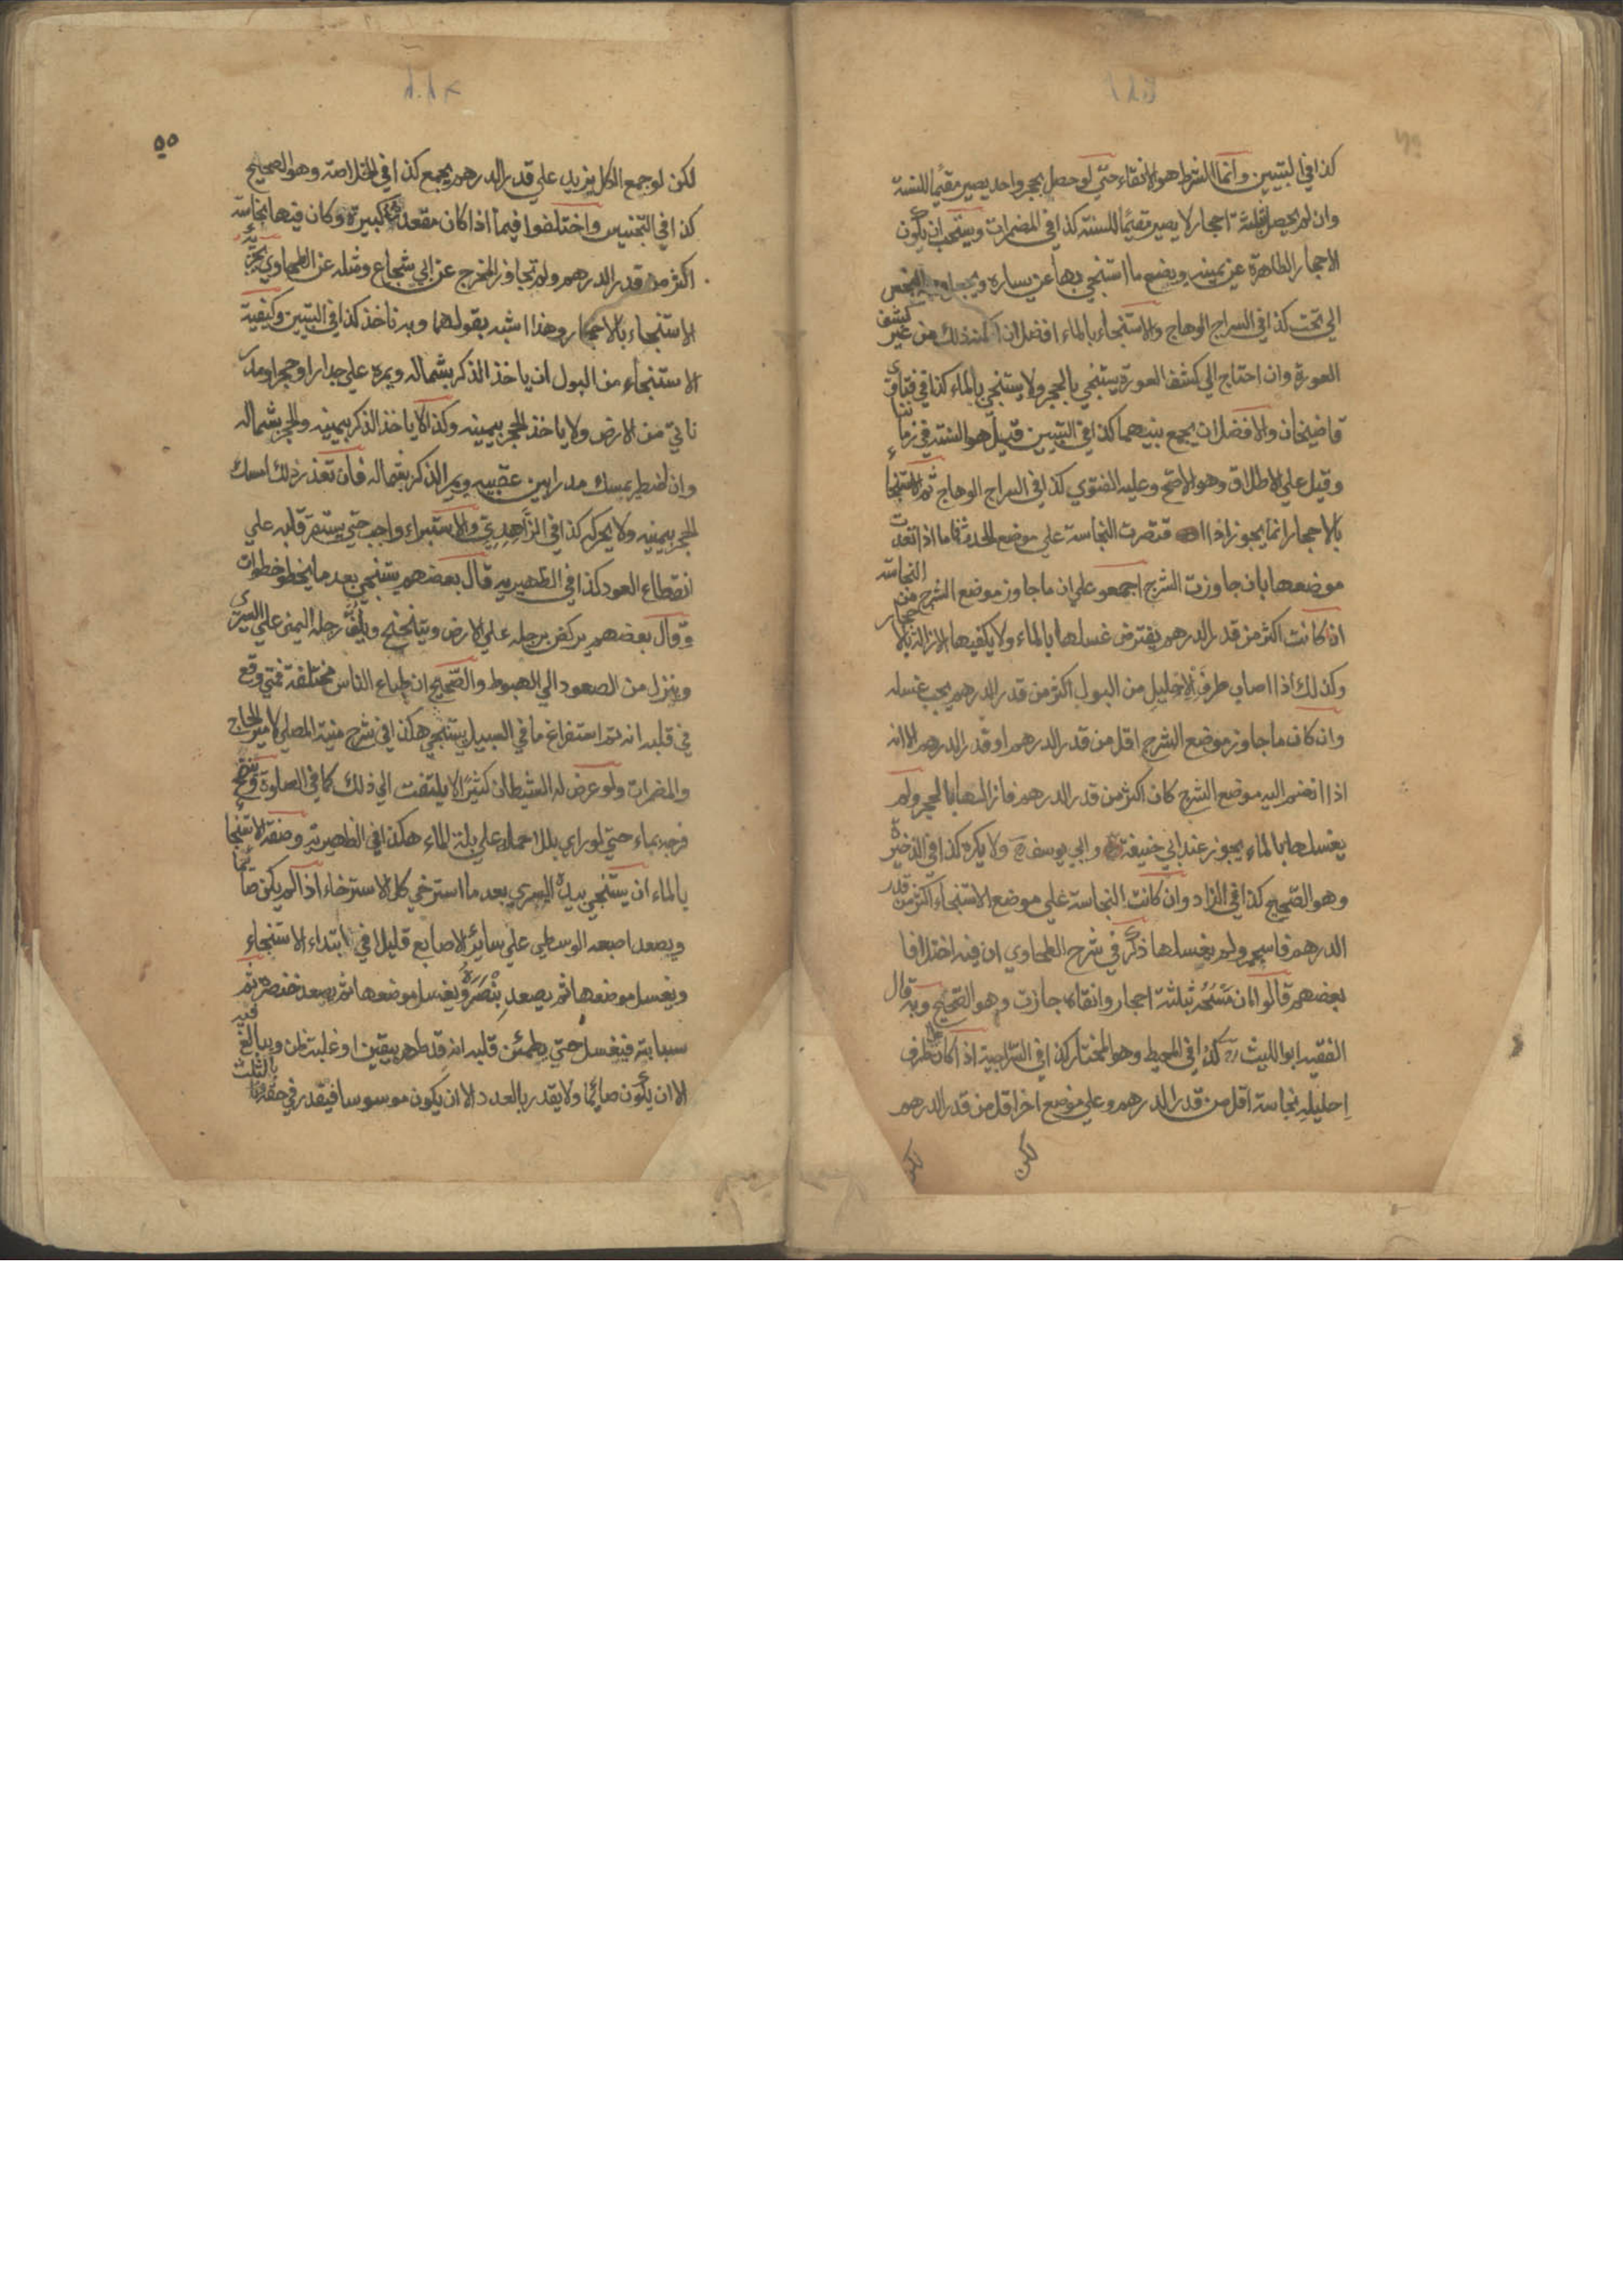 كذا في التبيين وانما الشرط هو الانقاء حتي لو حصل بحجر واحد يصير مقيما للسنة
وان لم يحصل بثلثة احجار لا يصير مقيما للسنة كذا في المضمرات ويستحب ان يكون
الاحجار الطاهرة عن يمينه ويضع ما استنجي بها عن يساره ويجعل وجه النجس
الي تحت كذا في السراج الوهاج والاستنجاء بالماء افضل ان امكنه ذلك من غير كشف
العورة وان احتاج الي كشف العورة يستنجي بالحجر ولا يستنجي بالماء كذا في فتاوي
قاضيخان والافضل ان يجمع بينهما كذا في التبيين قيل هو السنة في زماننا
وقيل علي الاطلاق وهو الاصح وعليه الفتوي كذا في السراج الوهاج ثم الاستنجاء
بالاحجار انما يجوز اذا اقتصرت النجاسة علي موضع الحدث فاما اذا تعدت
موضعها بان جاوزت الشرج اجمعو علي ان ما جاوز موضع الشرج من النجاسة
اذا كانت اكثر من قدر الدرهم يفترض غسلها بالماء ولا يكفيها الازالة بالاحجار
وكذلك اذا اصاب طرف الاحليل من البول اكثر من قدر الدرهم يجب غسله
وان كان ما جاوز موضع الشرج اقل من قدر الدرهم او قدر الدرهم الا انه
اذا انضم اليه موضع الشرج كان اكثر من قدر الدرهم فازالها بالحجر ولم
يغسلها بالماء يجوز عند ابي حنيفة وابي يوسف رح ولا يكره كذا في الذخيرة
وهو الصحيح كذا في الزاد وان كانت النجاسة علي موضع الاستنجاء اكثر من قدر
الدرهم فاسجمر ولم يغسلها ذكر في شرح الطحاوي ان فيه اختلافا
بعضهم قالوا ان مسحه بثلثة احجار وانقاه جازت وهو الصحيح وبه قال
الفقيه ابو الليث رح كذا في المحيط وهو المختار كذا في السراجية اذا كان علي طرف
احليله نجاسة اقل من قدر الدرهم وعلي موضع اخر اقل من قدر الدرهم
لكن
لكن
٥٥
لكن لو جمع الكل يزيد علي قدر الدرهم يجمع كذا في الخلاصة وهو الصحيح
كذا في التجنيس واختلفوا فيما اذا كان مقعده كبيرة وكان فيها نجاسة
اكثر من قدر الدرهم ولم تجاوز المخرج عن ابي شجاع ومثله عن الطحاوي يجزيه
الاستنجاء بالاحجار وهذا اشبه بقولهما وبه ناخذ كذا في التبيين وكيفية
الاستنجاء من البول ان ياخذ الذكر بشماله ويمره علي جدار او حجر او مدر
ناتئ من الارض ولا ياخذ الحجر بيمينه وكذا لا ياخذ الذكر بيمينه والحجر بشماله
وان اضطر يمسك مدرا بين عقبيه ويمر الذكر بشماله فان تعذر ذلك امسك
الحجر بيمينه ولا يحركه كذا في الزاهدي والاستبراء واجب حتي يستقر قلبه علي
انقطاع العود كذا في الظهيرية قال بعضهم يستنجي بعد ما يخطو خطوات
وقال بعضهم يركض برجله علي الارض ويتنحنح ويلف رجله اليمني علي اليسري
وينزل من الصعود الي الهبوط والصحيح ان طباع الناس مختلفة فمتي وقع
في قلبه انه تم استفراغ ما في السبيل يستنجي هكذا في شرح منية المصلي لامير الحاج
والمضمرات ولو عرض له الشيطان كثيرا لا يلتفت الي ذلك كما في الصلوة وينضح
فرجه بماء حتي لو راي بللا حمله علي بلة الماء هكذا في الظهيرية وصفة الاستنجاء
بالماء ان يستنجي بيده اليسري بعد ما استرخي كل الاسترخاء اذا لم يكن صائما
ويصعد اصبعه الوسطي علي سائر الاصابع قليلا في ابتداء الاستنجاء
ويغسل موضعها ثم يصعد بنصره ويغسل موضعها ثم يصعد خنصره ثم
سبابته فيغسل حتي يطمئن قلبه انه قد طهر بيقين او غلبة ظن ويبالغ فيه
الا ان يكون صائما ولا يقدر بالعدد الا ان يكون موسوسا فيقدر في حقه بالثلث